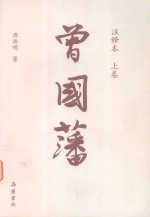 注释本 上卷
唐浩明 著
曾國藩
岳麓書社